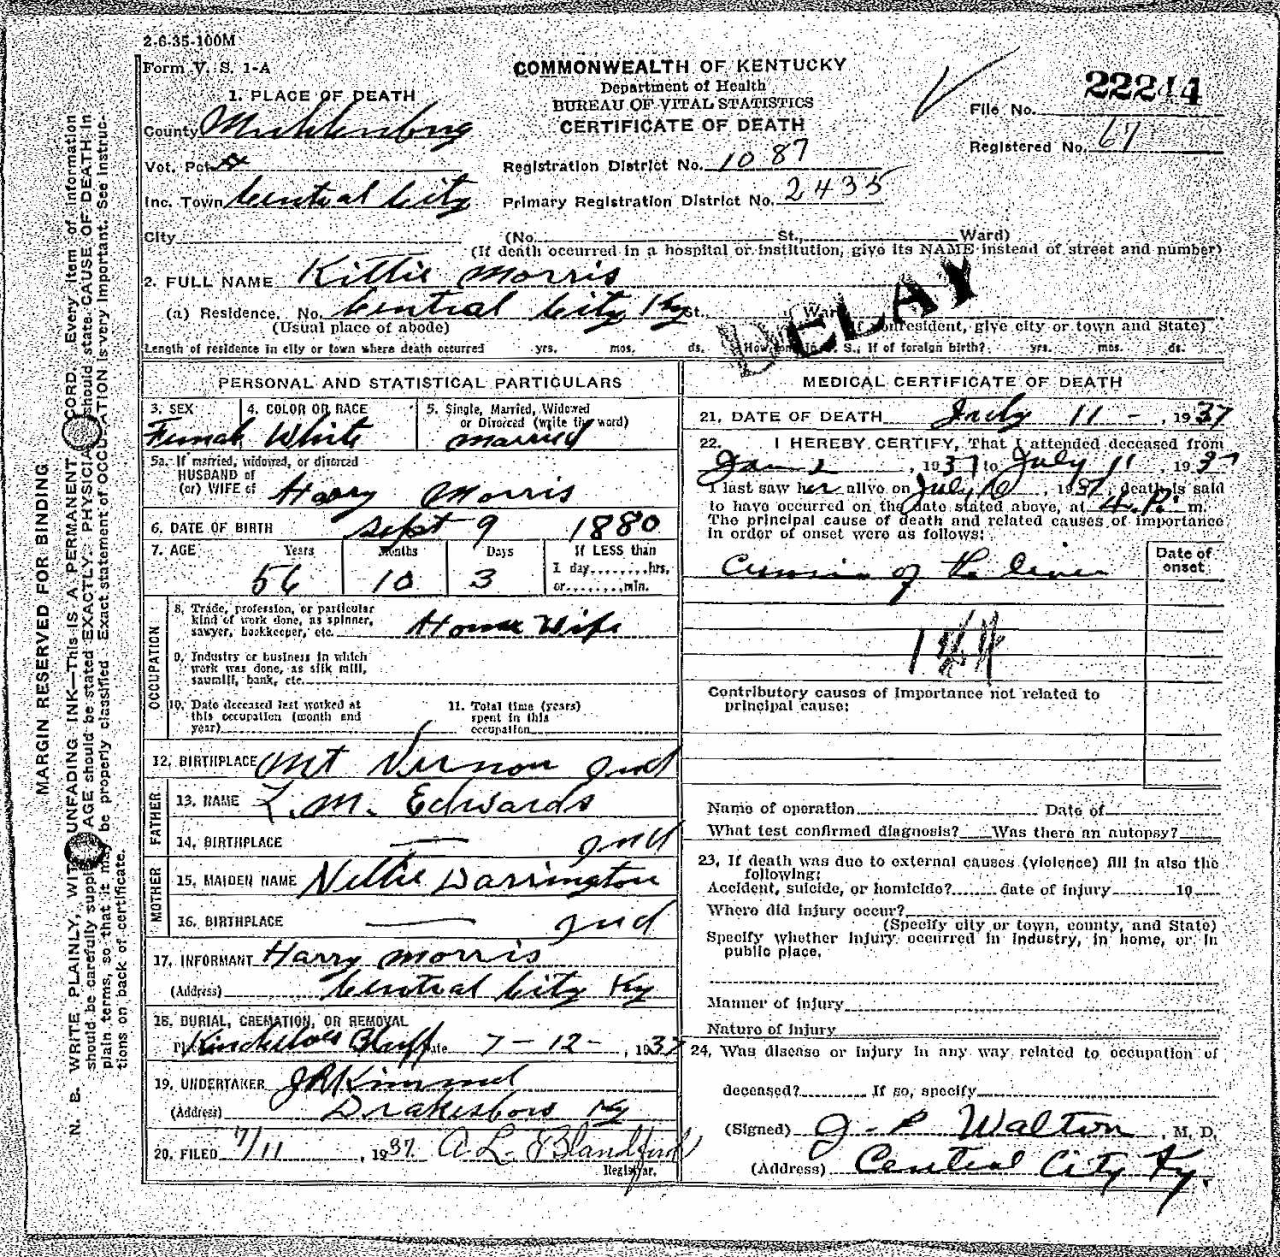 2-6-35-100M
Form V. S. 1-A
COMMONWEALTH OF KENTUCKY
Department of Health
BUREAU OF VITAL STATISTICS
CERTIFICATE OF DEATH
File No. 22244
Registered No. 67
1. PLACE OF DEATH
County Muhlenberg
Vot. Pct.
Inc. Town Central City
City
Registration District No. 1087
Primary Registration District No. 2435
(No. St., Ward)
(If death occurred in a hospital or institution, give its NAME instead of street and number)
2. FULL NAME Kittie Morris
(a) Residence. No. Central City Ky St., Ward
(Usual place of abode) (If nonresident, give city or town and State)
DELAY
Length of residence in city or town where death occurred yrs. mos. ds. How long in U. S., if of foreign birth? yrs. mos. ds.
PERSONAL AND STATISTICAL PARTICULARS
3. SEX Female
4. COLOR OR RACE White
5. Single, Married, Widowed
or Divorced (write the word)
Married
5a. If married, widowed, or divorced
HUSBAND of
(or) WIFE of Harry Morris
6. DATE OF BIRTH Sept 9 1880
7. AGE Years Months Days If LESS than
56 10 3 1 day........hrs.
or........min.
OCCUPATION
8. Trade, profession, or particular
kind of work done, as spinner,
sawyer, bookkeeper, etc. House Wife
9. Industry or business in which
work was done, as silk mill,
sawmill, bank, etc.
10. Date deceased last worked at
this occupation (month and
year)
11. Total time (years)
spent in this
occupation
12. BIRTHPLACE Mt Vernon Ind
FATHER
13. NAME L. M. Edwards
14. BIRTHPLACE — Ind
MOTHER
15. MAIDEN NAME Nettie Darrington
16. BIRTHPLACE — Ind
17. INFORMANT Harry Morris
(Address) Central City Ky
18. BURIAL, CREMATION, OR REMOVAL
Bluff Date 7-12-, 1937
19. UNDERTAKER J R Kimmel
(Address) Drakesboro Ky
20. FILED 7/11, 1937. A. L. Blandford
Registrar.
MEDICAL CERTIFICATE OF DEATH
21. DATE OF DEATH July 11 - , 1937
22. I HEREBY CERTIFY, That I attended deceased from
Jan 2, 1937 to July 11, 1937
I last saw her alive on July , 1937, death is said
to have occurred on the date stated above, at 4 P. m.
The principal cause of death and related causes of importance
in order of onset were as follows:
Date of
onset
of the liver
Contributory causes of importance not related to
principal cause:
Name of operation Date of
What test confirmed diagnosis? Was there an autopsy?
23. If death was due to external causes (violence) fill in also the
following:
Accident, suicide, or homicide? date of injury 19
Where did injury occur?
(Specify city or town, county, and State)
Specify whether injury occurred in industry, in home, or in
public place.
Manner of injury
Nature of injury
24. Was disease or injury in any way related to occupation of
deceased? If so, specify
(Signed) J. P. Walton, M. D.
(Address) Central City Ky.
MARGIN RESERVED FOR BINDING
N. B. WRITE PLAINLY, WITH UNFADING INK—THIS IS A PERMANENT RECORD. Every item of information
should be carefully supplied. AGE should be stated EXACTLY. PHYSICIANS should state CAUSE OF DEATH in
plain terms, so that it may be properly classified. Exact statement of OCCUPATION is very important. See instruc-
tions on back of certificate.